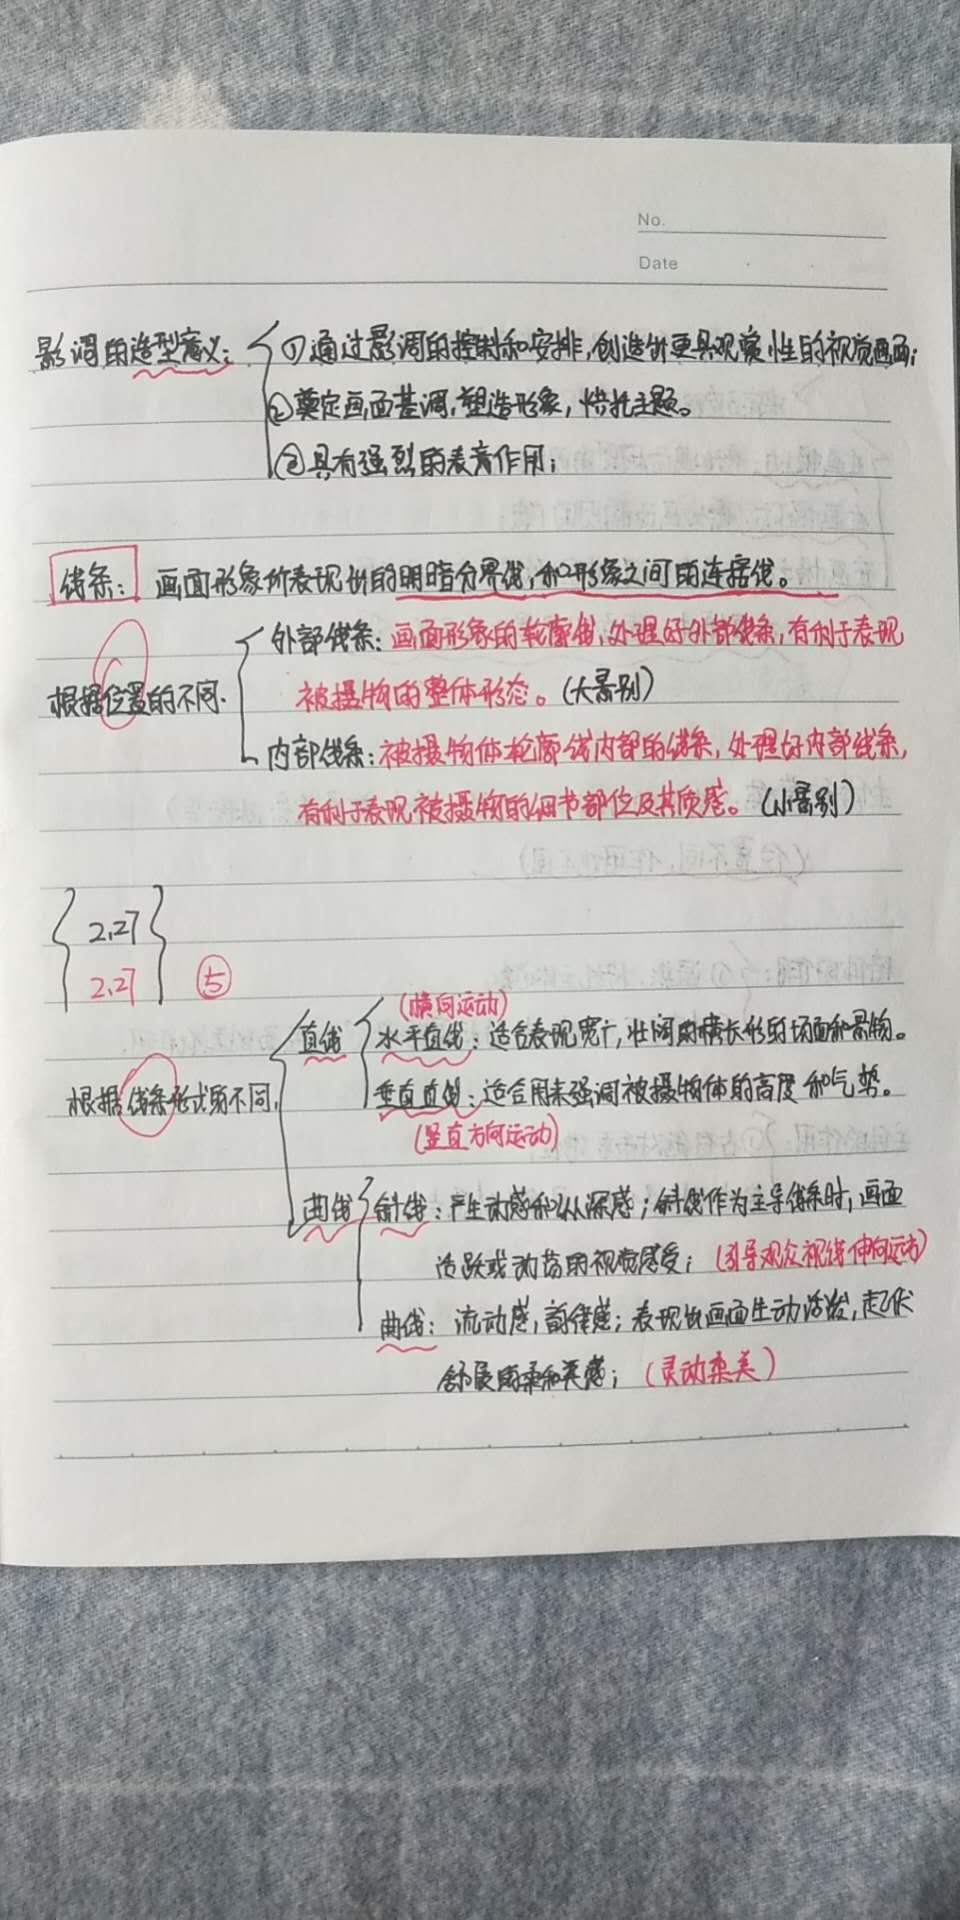 No.
Date
影调的造型意义: ①通过影调的控制和安排,创造出更具观赏性的视觉画面;
②奠定画面基调,塑造形象,烘托主题。
③具有强烈的表意作用;
线条: 画面形象所表现出的明暗分界线,和形象之间的连接线。
外部线条: 画面形象的轮廓线,处理好外部线条,有利于表现
根据位置的不同. 被摄物的整体形态。(大景别)
内部线条: 被摄物体轮廓线内部的线条,处理好内部线条,
有利于表现被摄物的细节部位及其质感。(小景别)
2.27
2.27 ⑤
(横向运动)
直线 水平直线: 适合表现宽广,壮阔的横长形的场面和景物。
根据线条形式的不同, 垂直直线: 适合用来强调被摄物体的高度和气势。
(竖直方向运动)
曲线 斜线: 产生动感和纵深感;斜线作为主导线条时,画面
活跃或动荡的视觉感受; (引导观众视线伸向远方)
曲线: 流动感,韵律感;表现出画面生动活泼,起伏
舒展的柔和美感; (灵动柔美)